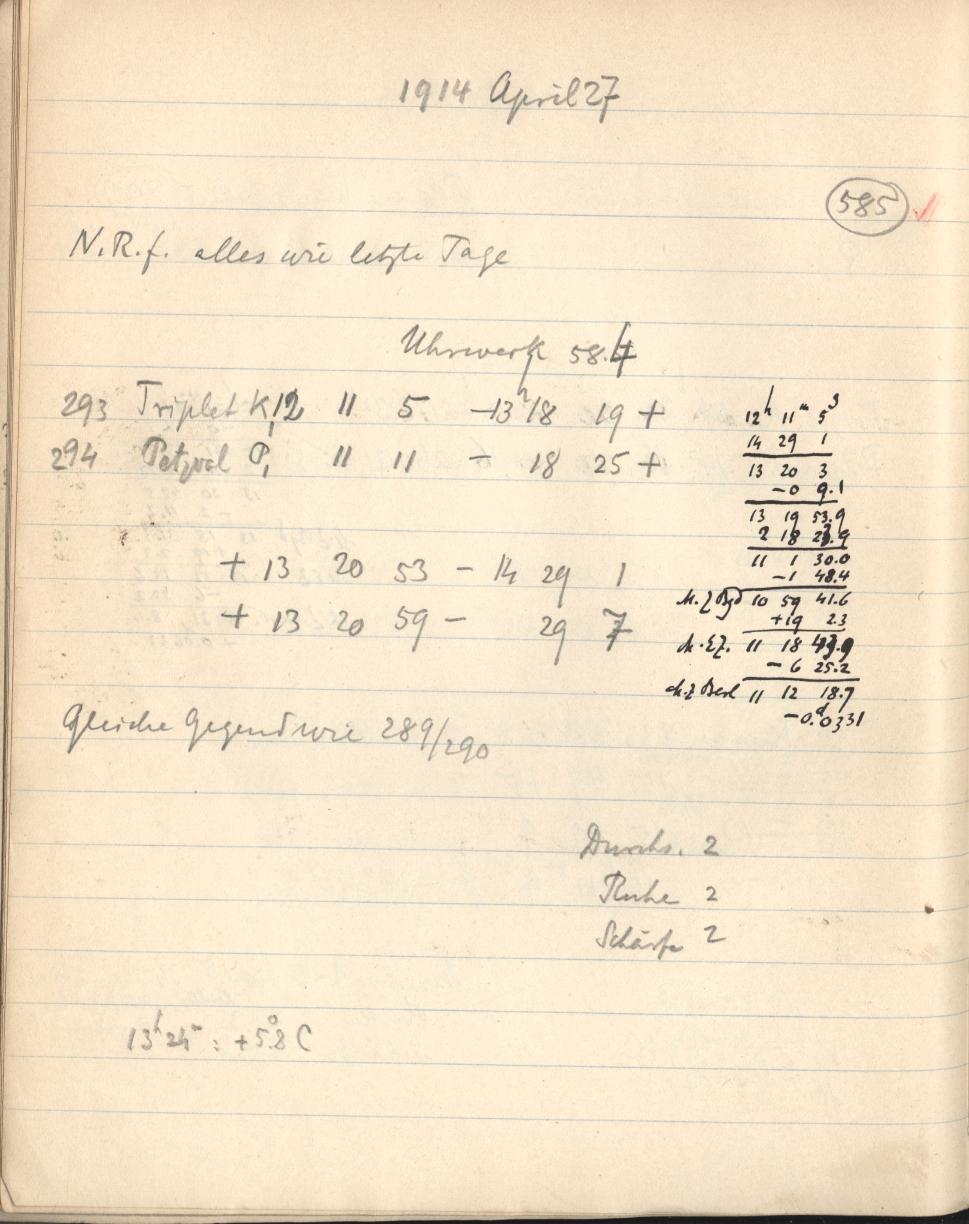 1914 April 27
585
N.R.f. alles wie letzte Tage
Uhrwerk 58.4
293 Triplet K, 12 11 5. -13h 18 19 +
294 Petzval P, 11 11 - 18 25 +
+ 13 20 53 - 14 29 1
+ 13 20 59 - 29 7
12h 11m 5s
14 29 1
13 20 3
-0 9.1
13 19 53.9
2 18 23.9
11 1 30.0
-1 48.4
M.Z Bgd 10 59 41.6
+19 2.3
M.E.Z. 11 18 43.9
- 6 25.2
M.Z Berl 11 12 18.7
-0.d0331
Gleiche Gegend wie 289/290
Durchs. 2
Ruhe 2
Schärfe 2
13h 24m : +5°.8 C